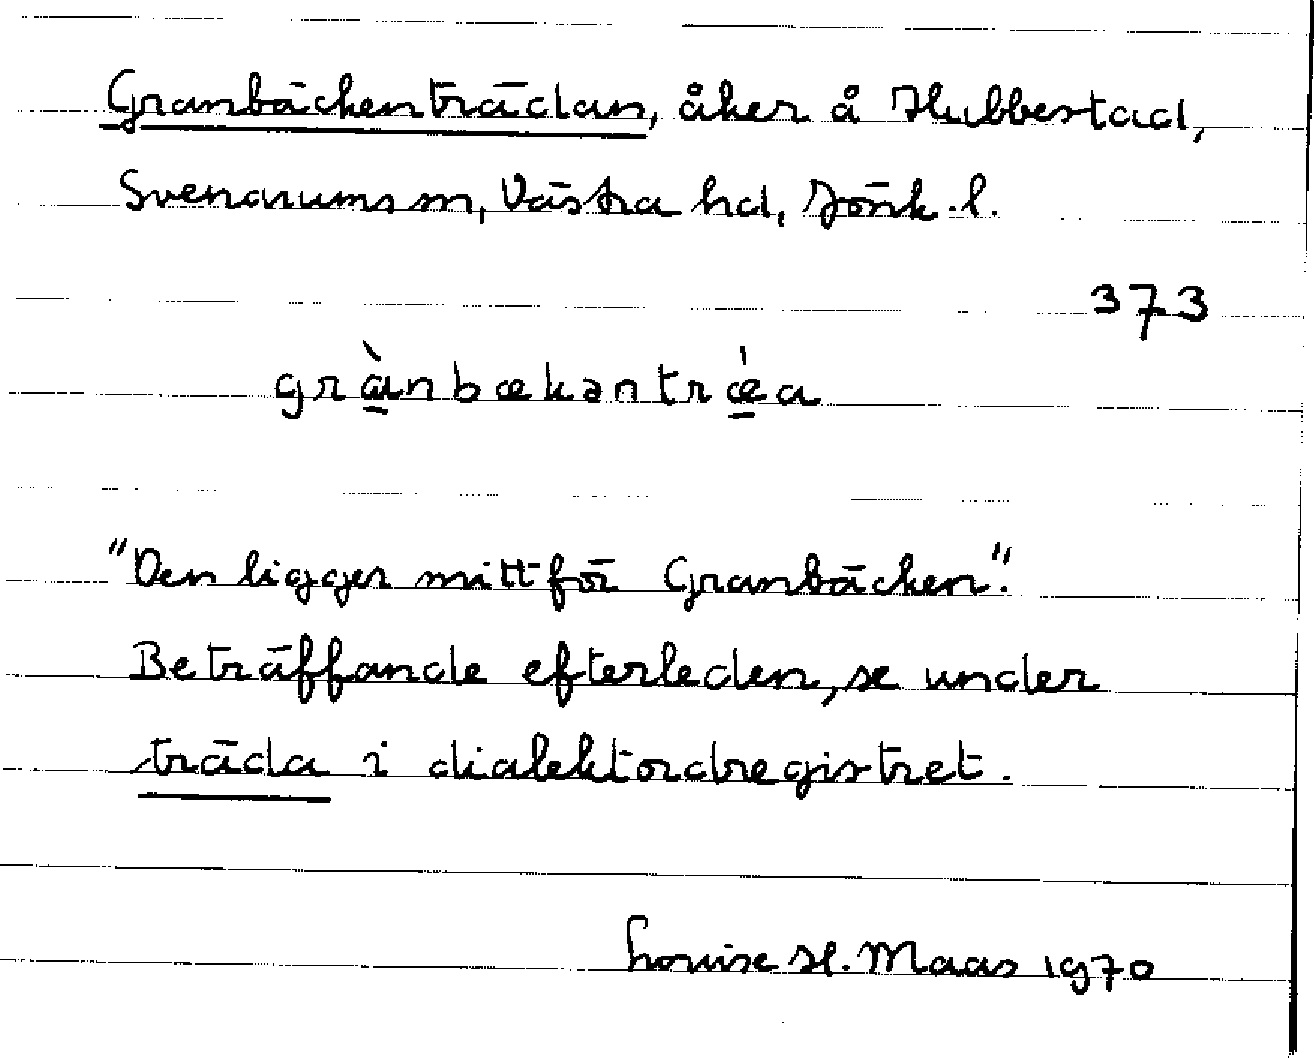 Granbäckenträdan, åker å Hubbestad,
Svenarums sn, Västra hd, Jönk. l.
373
grànbækəntrǽa
"Den ligger mitt för Granbäcken".
Beträffande efterleden, se under
träda i dialektordregistret.
Louise H. Maas 1970